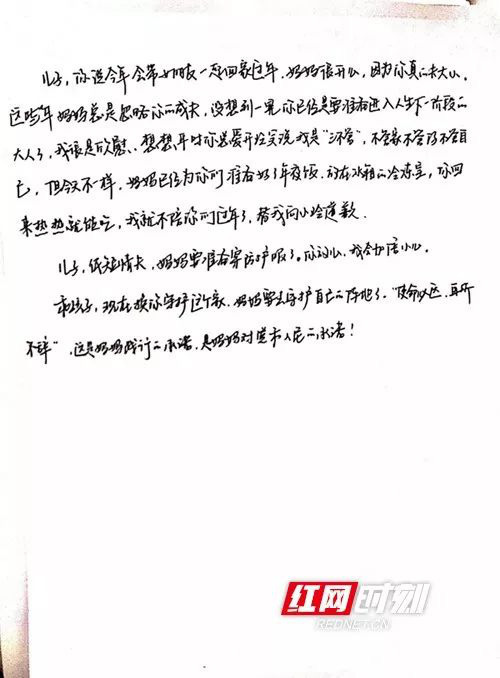 儿子，你说今年会带女朋友一起回家过年，妈妈很开心，因为你真的长大了。
这些年妈妈总是忽略你的成长，没想到一晃你已经是要准备进入人生下一阶段的
大人了，我很是欣慰。想想平时你总爱开玩笑说我是“三不管”，不管家不管你不管自
己，但今天不一样，妈妈已经为你们准备好了年夜饭，放在冰箱的冷冻室，你回
来热热就能吃，我就不陪你们过年了，替我向小冷道歉．
儿子，纸短情长，妈妈要准备穿防护服了。你放心，我会加倍小心。
乖孩子，现在换你守护这个家，妈妈要去守护自己的阵地了。“使命必达，在所
不辞”，这是妈妈践行的承诺，是妈妈对党和人民的承诺！
红网时刻
REDNET.CN